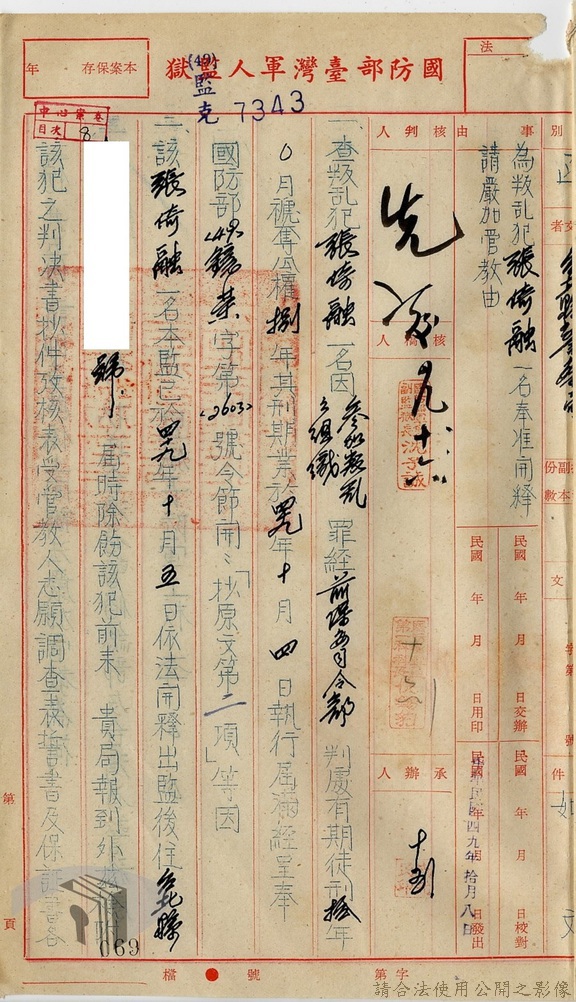 國防部臺灣軍人監獄
本案保存 年
法
(49)監克 7343
中心案卷
目次 8
事由
別
為叛乱犯張倚融一名奉准開釋
請嚴加管教由
核判人
核稿人
承辦人
民國 年 月 日交辦
民國 年 月 日用印
民國 年 月 日校對
中華民國四九年拾月八日發出
副本份數
文
件
如文
字第 號
十六
一、查叛乱犯張倚融一名因參加叛乱之組織罪経前保安司令部判處有期徒刑拾年
○月褫奪公權捌年其刑期業於四九年十月四日執行屆滿経呈奉
國防部(49)字第(2603)號令節開：「抄原文第二項」等因
二、該張倚融一名本監已於四九年十月五日依法開釋出監後住台北縣
號屆時除飭該犯前來 貴局報到外
該犯之判決書抄件及核表受管教人志願調查表誓書及保証書各
069
第 頁
檔 號
字第
請合法使用公開之影像